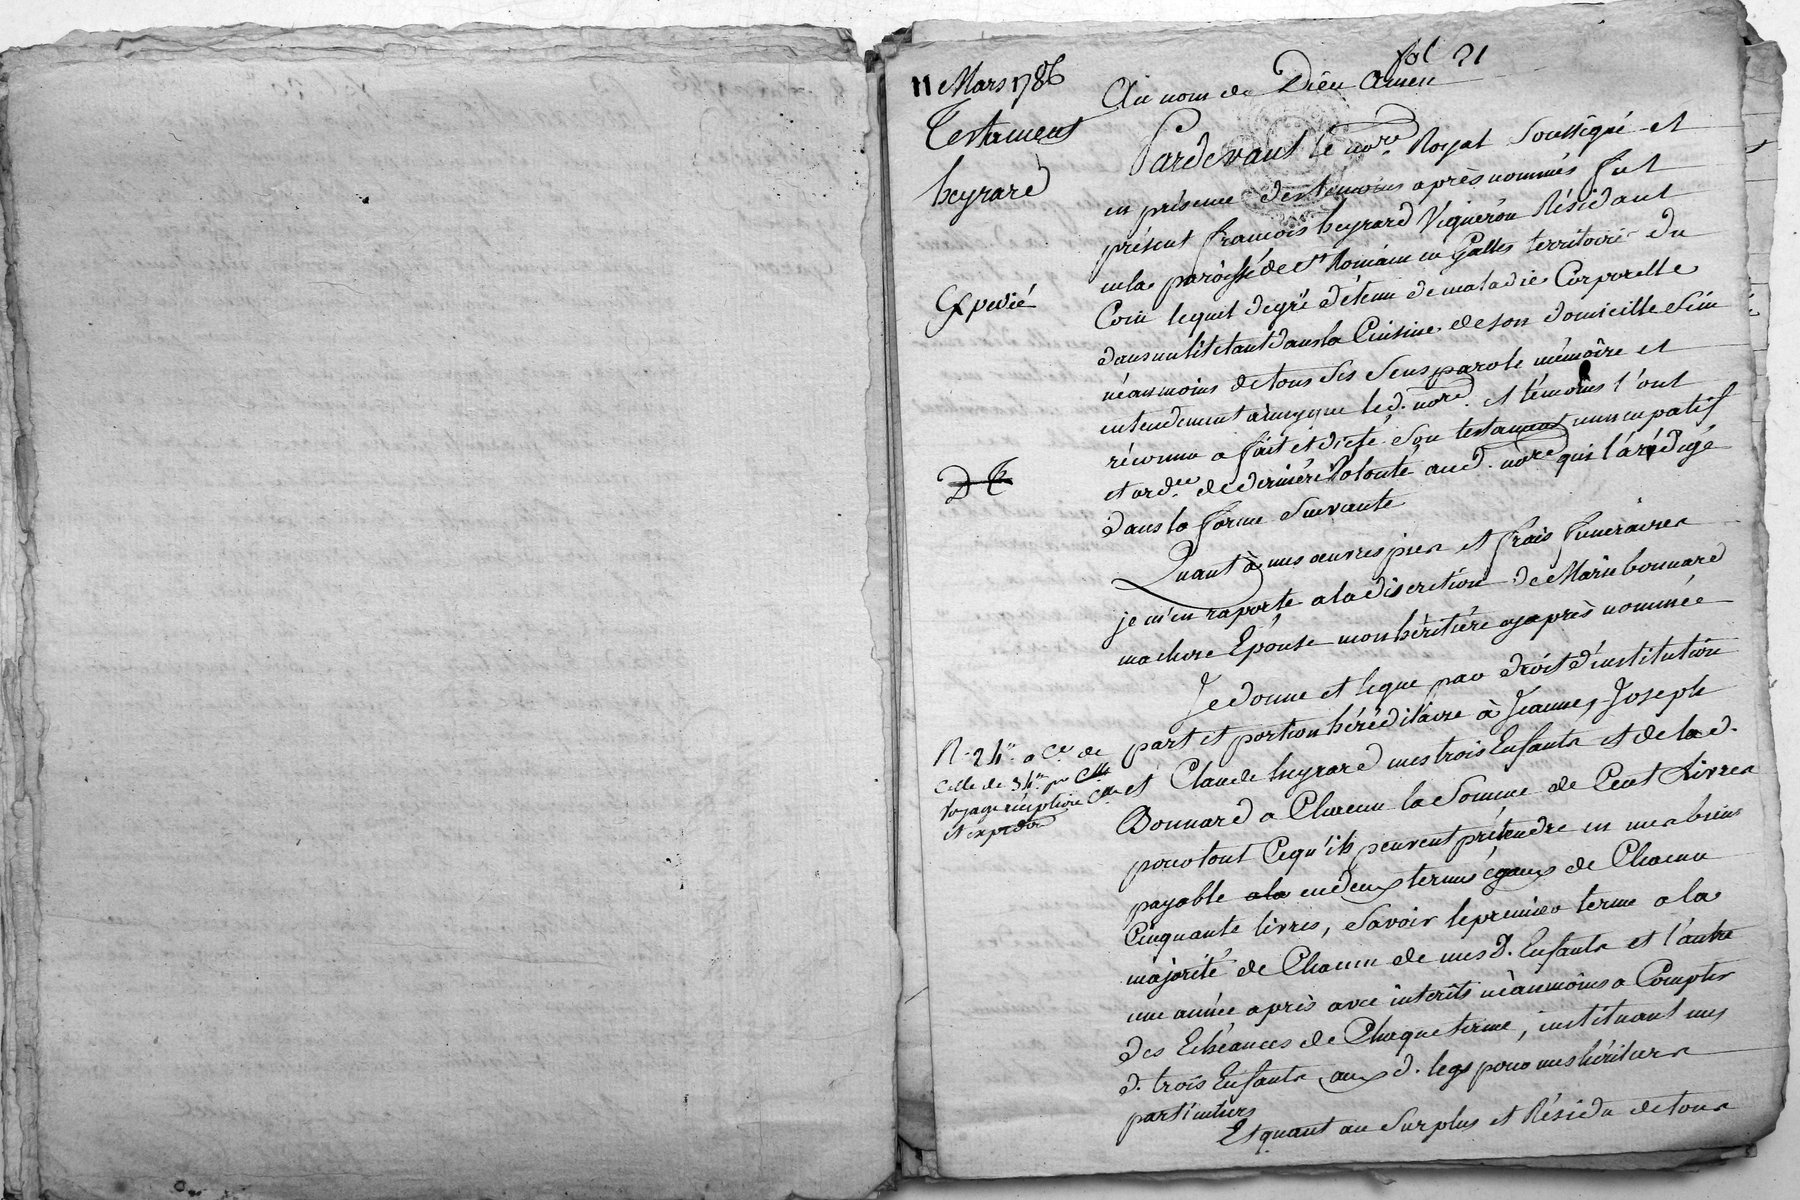 fol 21
11 Mars 1786
Testament
heyrard
Expedié
D C
Au nom de Dieu Amen
Pardevant le nore. Royal Soussigné et
en présence des temoins après nommés fut
présent françois heyrard Vigneron Résidant
en la paroisse de St Romain en Galles territoire du
Coin lequel de gré détenu de maladie Corporelle
dans un lit étant dans la Cuisine de son domicille Sein
néanmoins de tous ses Sens parole mémoire et
entendement ainsy que led. nore. et témoins l'ont
réconnu a fait et dicté Son testament nuncupatif
et ordce. de derniére Volonté aud. nore qui l'a rédigé
dans la forme Suivante
Quant à mes œuvres pies et frais funéraires
je m'en raporte a la discretion de Marie bonnard
ma chere Epouse mon héritiére cy après nommée
Je donne et legue par droit d'institution
part et portion héréditaire à Jeanne, Joseph
et Claude heyrard mes trois Enfants et de lad.
Bonnard a Chacun la Somme de Cent Livres
pour tout Ce qu'ils peuvent prétendre en mes biens
payable a la en deux termes égaux de Chacun
Cinquante livres, Savoir le premier terme a la
majorité de Chacun de mes d. Enfants et l'autre
une année après avec intérêts néanmoins a Compter
des Echéances de Chaque terme, instituant mes
d. trois Enfants aux d. legs pour mes héritiers
particuliers
Et quant au Surplus et Résidu de tous
R. 24 a Ce. de
celle de 34 pr Clle
Voyage réception Clle
et expedon